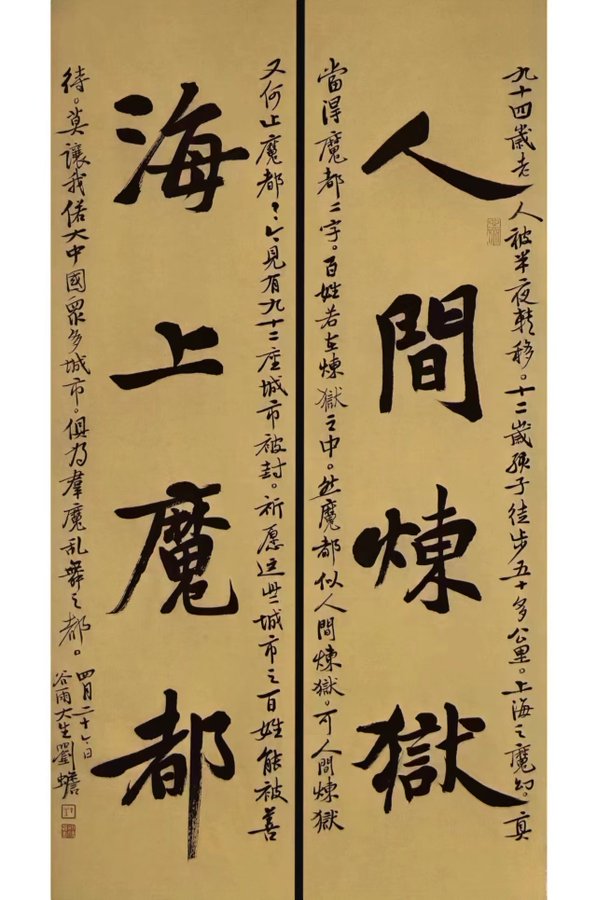 人間煉獄
海上魔都
九十四歲老人被半夜転移。十二歲孩子徒步五十多公里。上海之魔幻。真
當得魔都二字。百姓若在煉獄之中。然魔都似人間煉獄。可人間煉獄
又何止魔都？今見有九十二座城市被封。祈愿这些城市之百姓能被善
待。莫讓我偌大中國眾多城市。俱为羣魔乱舞之都。
四月二十六日
谷雨大生劉蟾